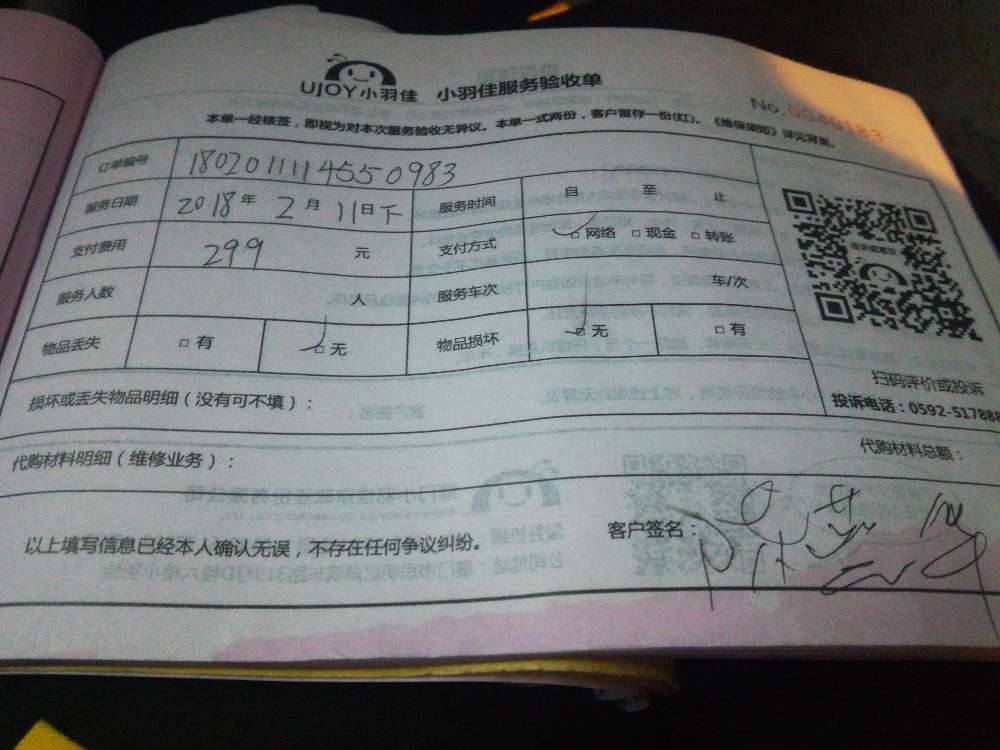 UJOY小羽佳 小羽佳服务验收单
No.0549183
本单一经核签，即视为对本次服务验收无异议。本单一式两份，客户留存一份(红)。《维保须知》详见背面。
订单编号 1802011114550983
服务日期 2018年 2月 11日下 服务时间 自 至 止
支付费用 299 元 支付方式 □网络 □现金 □转账
服务人数 人 服务车次 车/次
物品丢失 □有 □无 物品损坏 □无 □有
扫码评价或投诉
投诉电话：0592-517888
损坏或丢失物品明细（没有可不填）：
代购材料明细（维修业务）： 代购材料总额：
以上填写信息已经本人确认无误，不存在任何争议纠纷。 客户签名：